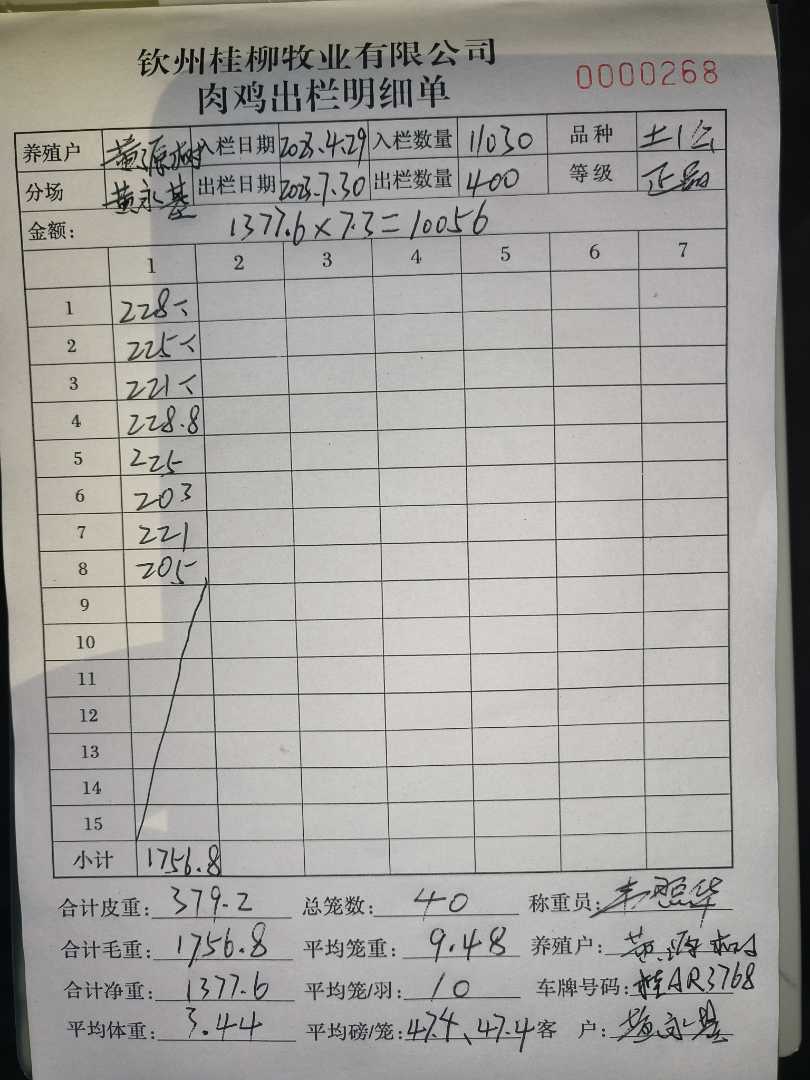 钦州桂柳牧业有限公司
肉鸡出栏明细单 0000268
养殖户 黄源树 入栏日期 2023.4.29 入栏数量 11030 品种 土1公
分场 黄永基 出栏日期 2023.7.30 出栏数量 400 等级 正品
金额: 1377.6×7.3=10056
1 2 3 4 5 6 7
1 228
2 225
3 221
4 228.8
5 225
6 203
7 221
8 205
9
10
11
12
13
14
15
小计 1756.8
合计皮重: 379.2 总笼数: 40 称重员:
合计毛重: 1756.8 平均笼重: 9.48 养殖户: 黄源树
合计净重: 1377.6 平均笼/羽: 10 车牌号码: 桂AR3768
平均体重: 3.44 平均磅/笼: 47.4、47.4 客 户: 黄永基